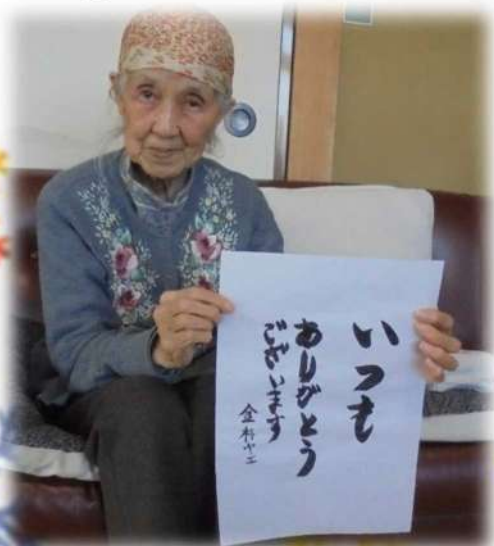 いつも
ありがとう
ございます
金杉ヤエ